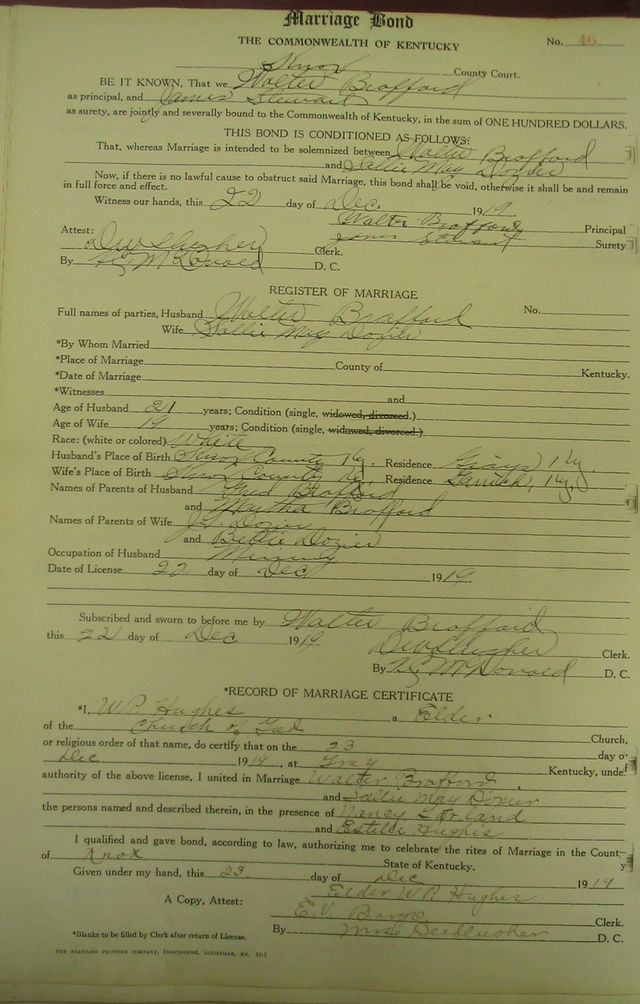 Marriage Bond
THE COMMONWEALTH OF KENTUCKY
No. 46
Knox County Court.
BE IT KNOWN, That we Walter Brafford
as principal, and James Stewart
as surety, are jointly and severally bound to the Commonwealth of Kentucky, in the sum of ONE HUNDRED DOLLARS.
THIS BOND IS CONDITIONED AS FOLLOWS:
That, whereas Marriage is intended to be solemnized between Walter Brafford
and Sallie May Dozier
Now, if there is no lawful cause to obstruct said Marriage, this bond shall be void, otherwise it shall be and remain
in full force and effect.
Witness our hands, this 22 day of Dec. 1919.
Walter Brafford Principal
Attest: James Stewart Surety
Clerk.
By McDonald D. C.
REGISTER OF MARRIAGE
Full names of parties, Husband Walter Brafford No.
Wife Sallie May Dozier
*By Whom Married
*Place of Marriage County of Kentucky.
*Date of Marriage
*Witnesses and
Age of Husband 21 years; Condition (single, widowed, divorced.)
Age of Wife 19 years; Condition (single, widowed, divorced.)
Race: (white or colored) White
Husband's Place of Birth Knox County Ky. Residence Grays, Ky.
Wife's Place of Birth Knox County Ky. Residence Ky.
Names of Parents of Husband Brafford
and Brafford
Names of Parents of Wife Dozier
and Bettie Dozier
Occupation of Husband Mining
Date of License 22 day of Dec 1919.
Subscribed and sworn to before me by Walter Brafford
this 22 day of Dec 1919 Clerk.
By McDonald D. C.
*RECORD OF MARRIAGE CERTIFICATE
*I, W.P. Hughes a Elder
of the Church of God Church,
or religious order of that name, do certify that on the 23 day of
Dec 1919, at Gray Kentucky, under
authority of the above license, I united in Marriage Walter Brafford
and Sallie May Dozier
the persons named and described therein, in the presence of Nancy
and Estelle Hughes
I qualified and gave bond, according to law, authorizing me to celebrate the rites of Marriage in the County
of Knox State of Kentucky.
Given under my hand, this 23 day of Dec 1919
Elder W P Hughes
A Copy, Attest: E.V. Clerk.
By Mrs D. C.
*Blanks to be filled by Clerk after return of License.
THE STANDARD PRINTING COMPANY, Incorporated, LOUISVILLE, KY.